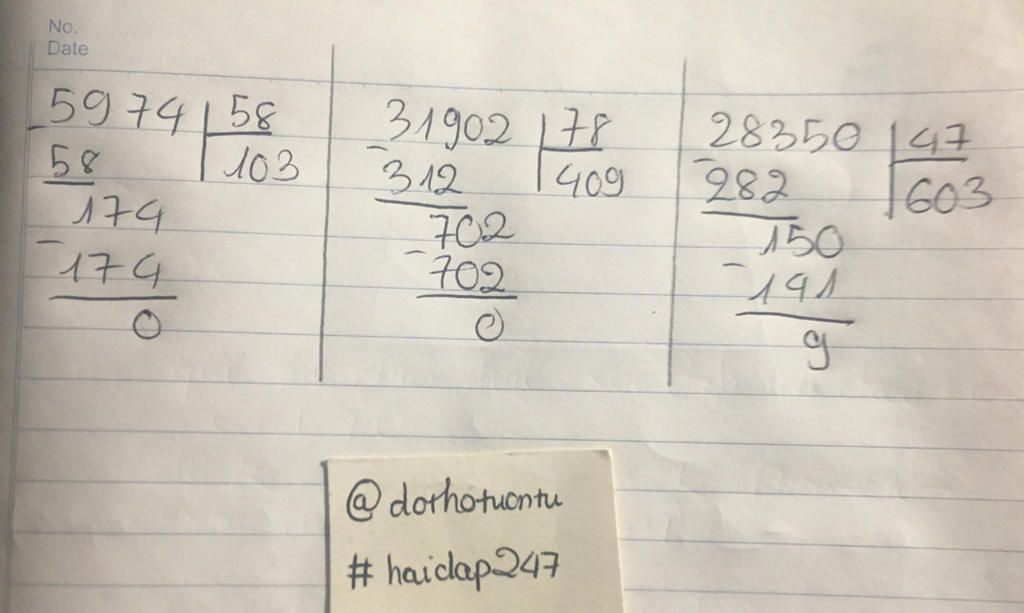 No.
Date
5974 58
- 58 103
174
- 174
0
31902 78
- 312 409
702
- 702
0
28350 47
- 282 603
150
- 141
9
@dothotuontu
#haidap247